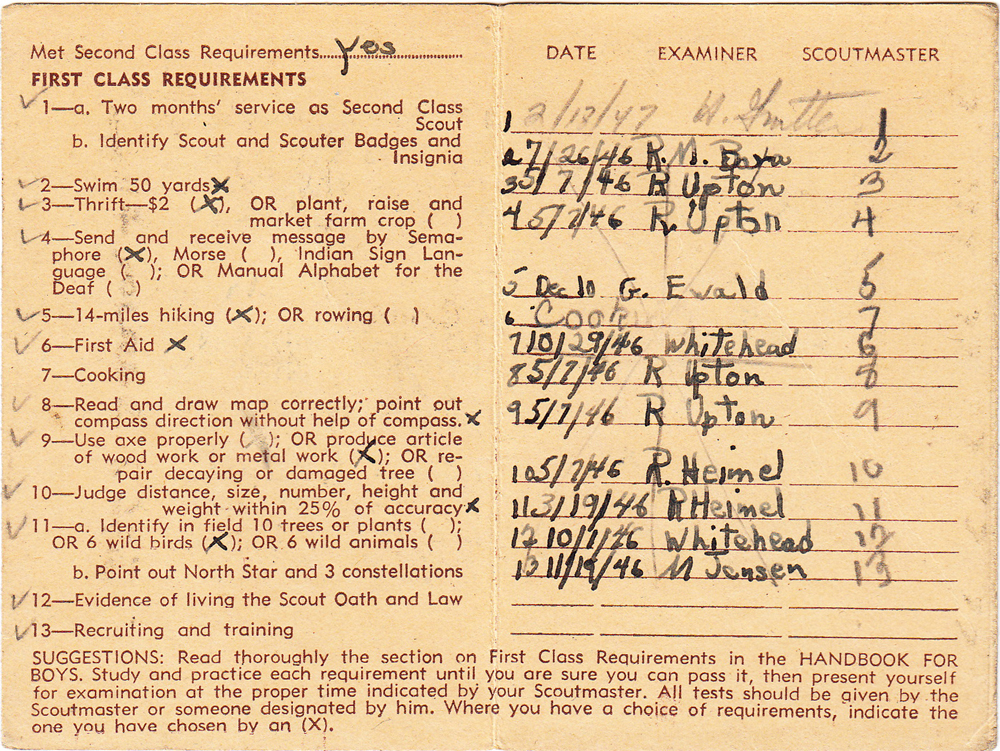 Met Second Class Requirements....yes....
FIRST CLASS REQUIREMENTS
✓ 1—a. Two months' service as Second Class
Scout
b. Identify Scout and Scouter Badges and
Insignia
✓ 2—Swim 50 yards X
✓ 3—Thrift—$2 (X), OR plant, raise and
market farm crop ( )
✓ 4—Send and receive message by Sema-
phore (X), Morse ( ), Indian Sign Lan-
guage ( ); OR Manual Alphabet for the
Deaf ( )
✓ 5—14-miles hiking (X); OR rowing ( )
✓ 6—First Aid X
7—Cooking
✓ 8—Read and draw map correctly; point out
compass direction without help of compass. X
✓ 9—Use axe properly ( ); OR produce article
of wood work or metal work (X); OR re-
pair decaying or damaged tree ( )
✓ 10—Judge distance, size, number, height and
weight within 25% of accuracy X
✓ 11—a. Identify in field 10 trees or plants ( );
OR 6 wild birds (X); OR 6 wild animals ( )
b. Point out North Star and 3 constellations
✓ 12—Evidence of living the Scout Oath and Law
✓ 13—Recruiting and training
DATE EXAMINER SCOUTMASTER
1 2/12/47 1
2 7/26/46 R.M. 2
3 5/7/46 R Upton 3
4 5/7/46 R Upton 4
5 Dec 10 G. Ewald 5
6 Cooking 7
7 10/29/46 Whitehead 6
8 5/7/46 R Upton 8
9 5/7/46 R Upton 9
10 5/7/46 R. Heimel 10
11 3/19/46 R Heimel 11
12 10/1/46 Whitehead 12
13 11/19/46 M Jensen 13
SUGGESTIONS: Read thoroughly the section on First Class Requirements in the HANDBOOK FOR
BOYS. Study and practice each requirement until you are sure you can pass it, then present yourself
for examination at the proper time indicated by your Scoutmaster. All tests should be given by the
Scoutmaster or someone designated by him. Where you have a choice of requirements, indicate the
one you have chosen by an (X).